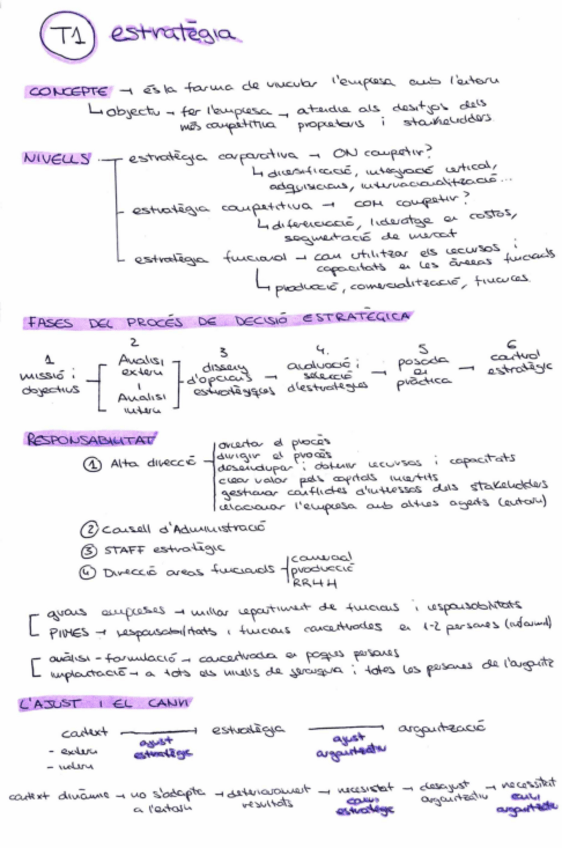 T1 estratègia
CONCEPTE → és la forma de vincular l'empresa amb l'entorn
↳ objectiu → fer l'empresa → atendre als desitjos dels
més competitiva propietaris i stakeholders
NIVELLS → estratègia corporativa → ON competir?
↳ diversificació, integració vertical,
adquisicions, internacionalització...
estratègia competitiva → COM competir?
↳ diferenciació, lideratge en costos,
segmentació de mercat
estratègia funcional → com utilitzar els recursos i
capacitats en les àrees funcionals
↳ producció, comercialització, finances
FASES DEL PROCÉS DE DECISIÓ ESTRATÈGICA
1 missió i objectius
2 Analisi extern i Analisi intern
3 disseny d'opcions estratègiques
4. avaluació i selecció d'estratègies
5 posada en pràctica
6 control estratègic
RESPONSABILITAT
1 Alta direcció
orientar el procés
dirigir el procés
desenvolupar i obtenir recursos i capacitats
crear valor pels capitals invertits
gestionar conflictes d'interessos dels stakeholders
relacionar l'empresa amb altres agents (entorn)
2 Consell d'Administració
3 STAFF estratègic
4 Direcció àrees funcionals
comercial
producció
RRHH
grans empreses → millor repartiment de funcions i responsabilitats
PIMES → responsabilitats i funcions concentrades en 1-2 persones (informal)
anàlisi - formulació → concentrada en poques persones
implantació → a tots els nivells de jerarquia i totes les persones de l'organitz
L'AJUST I EL CANVI
context — estratègia — organització
- extern
- intern
ajust estratègic
ajust organitzatiu
context dinàmic → no s'adapta a l'entorn → deteriorament resultats → necessitat canvi estratègic → desajust organitzatiu → necessitat canvi organitzatiu